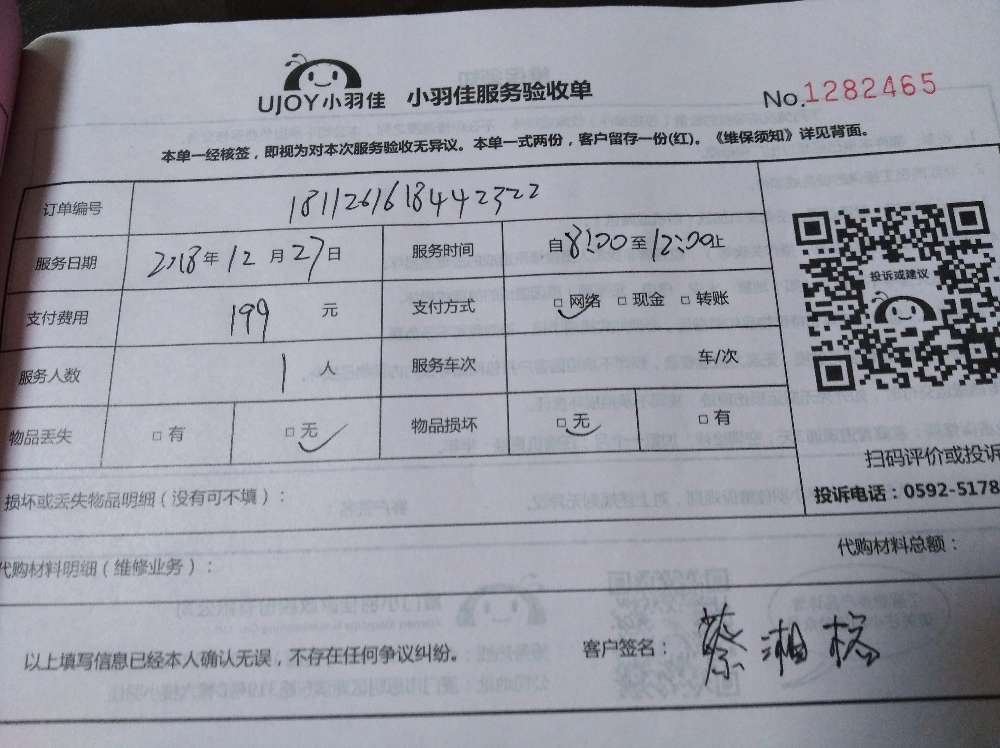 UJOY小羽佳 小羽佳服务验收单 No.1282465
本单一经核签，即视为对本次服务验收无异议。本单一式两份，客户留存一份(红)。《维保须知》详见背面。
订单编号 1811261618442322
服务日期 2018年12月27日 服务时间 自8:00至12:00止
投诉或建议
支付费用 199 元 支付方式 □网络 □现金 □转账
服务人数 1 人 服务车次 车/次
物品丢失 □有 □无 物品损坏 □无 □有
扫码评价或投诉
损坏或丢失物品明细(没有可不填)： 投诉电话：0592-5178
代购材料明细(维修业务)： 代购材料总额：
以上填写信息已经本人确认无误，不存在任何争议纠纷。 客户签名： 蔡湘